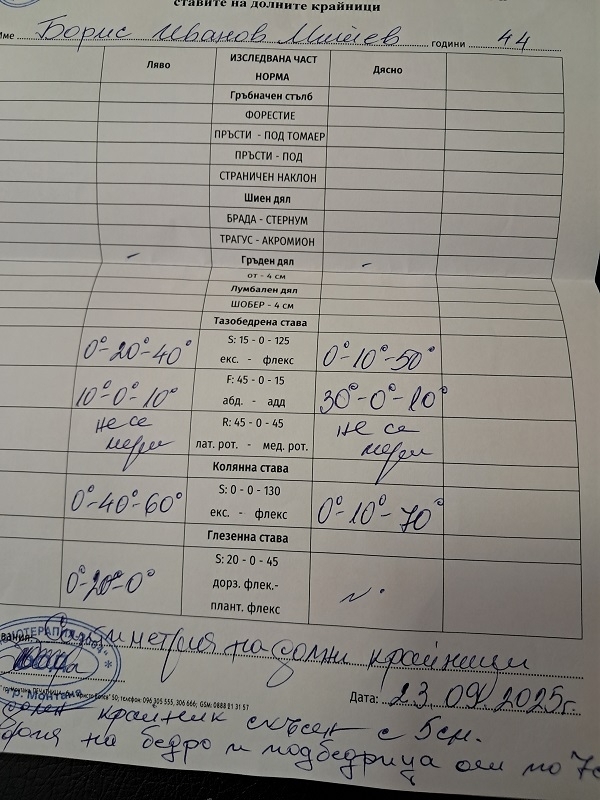 ставите на долните крайници
Име Борис Иванов години 44
Ляво ИЗСЛЕДВАНА ЧАСТ НОРМА Дясно
Гръбначен стълб
ФОРЕСТИЕ
ПРЪСТИ - ПОД ТОМАЕР
ПРЪСТИ - ПОД
СТРАНИЧЕН НАКЛОН
Шиен дял
БРАДА - СТЕРНУМ
ТРАГУС - АКРОМИОН
– Гръден дял –
от - 4 см
Лумбален дял
ШОБЕР - 4 см
Тазобедрена става
0°-20°-40° S: 15 - 0 - 125 екс. - флекс 0°-10°-50°
10°-0°-10° F: 45 - 0 - 15 абд. - адд 30°-0°-10°
не се мери R: 45 - 0 - 45 лат. рот. - мед. рот. не се мери
Колянна става
0°-40°-60° S: 0 - 0 - 130 екс. - флекс 0°-10°-70°
Глезенна става
0°-20°-0° S: 20 - 0 - 45 дорз. флек.- плант. флекс N.
на долни крайници
гр. Монтана
телефон: 096 305 555, 306 666; GSM: 0888 81 31 57
Дата: 23.09.2025г.
крайник скъсен с 5см.
на бедро и подбедрица